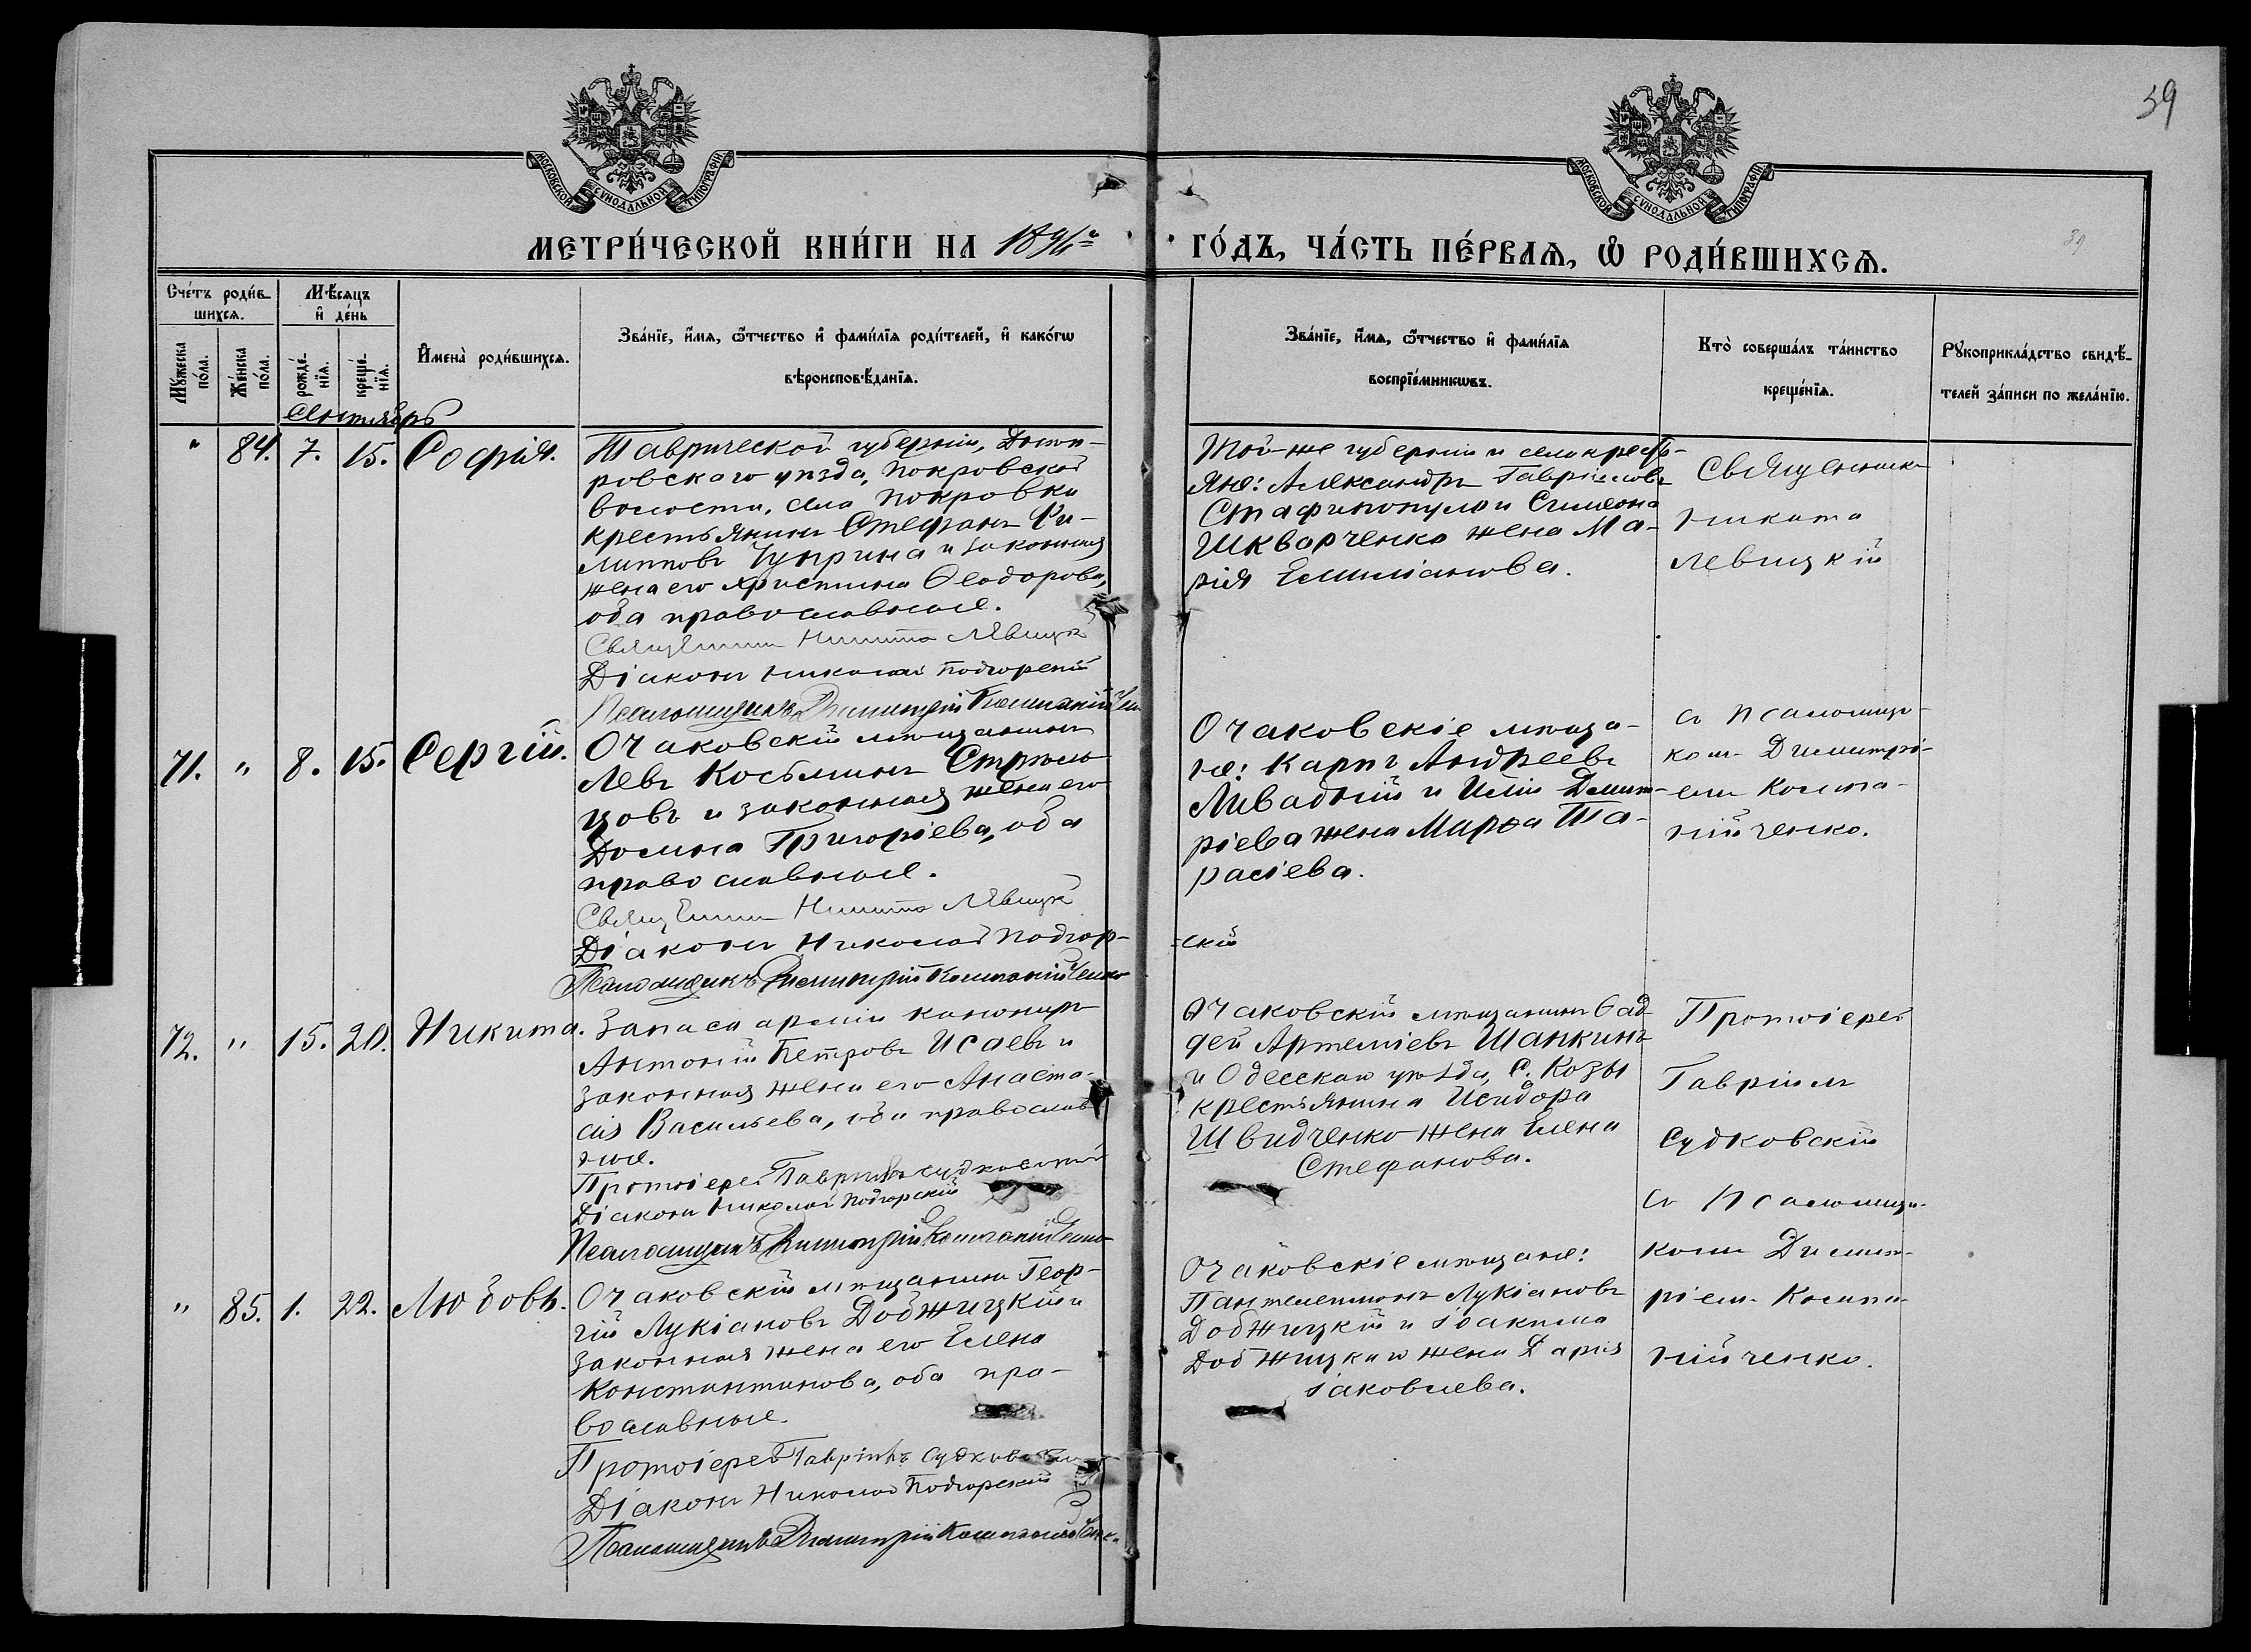 39
МОСКОВСКОЙ СѴНОДАЛЬНОЙ ТИПОГРАФІИ
МОСКОВСКОЙ СѴНОДАЛЬНОЙ ТИПОГРАФІИ
МЕТРИ́ЧЕСКОЙ КНИ́ГИ НА
ГО́ДЪ, ЧА́СТЬ ПЕ́РВАѦ, Ѡ҆ РОДИ́ВШИХСѦ.
39
Сче́тъ роди́в-
шихсѧ.
Мѣ́сѧцъ
и҆ де́нь
Мꙋ́жеска
по́ла.
Же́нска
по́ла.
рожде́-
нїѧ.
креще́-
нїѧ.
И҆мена̀ роди́вшихсѧ.
Зва́нїе, и҆́мѧ, ѻ҆́тчество и҆ фами́лїѧ роди́телей, и҆ како́гѡ
вѣроисповѣ́данїѧ.
Зва́нїе, и҆́мѧ, ѻ҆́тчество и҆ фами́лїѧ
воспрїе́мникѡвъ.
Кто̀ соверша́лъ та́инство
креще́нїѧ.
Рꙋкоприкла́дство свидѣ́-
телей за́писи по жела́нїю.
Сентябрь
" 84. 7. 15. Софія.
Таврической губерніи, Днѣп-
ровскаго уѣзда, Покровской
волости, села Покровки
крестьянинъ Стефанъ Фи-
липповъ Чуприна и законная
жена его Христина Ѳеодорова,
оба православные.
Священникъ Никита Левицкій
Діаконъ Николай Подгорскій
Псаломщикъ Димитрій Компанійченко
Той-же губерніи и села кресть-
яне: Александръ Гавриловъ
Стафипопуло и Симеона
Шкварченко жена Ма-
рія Емиліанова.
Священникъ
Никита
Левицкій
71. " 8. 15. Сергій.
Очаковскій мѣщанинъ
Левъ Косьминъ Стрѣль-
цовъ и законная жена его
Домна Григоріева, оба
православные.
Священникъ Никита Левицкій
Діаконъ Николай Подгор-
-скій
Псаломщикъ Димитрій Компанійченко
Очаковскіе мѣща-
не: Карпъ Андреевъ
Ливадній и Иліи Димит-
ріева жена Марѳа Та-
расіева.
съ Псаломщи-
комъ Димитрі-
емъ Компа-
нійченко.
72. " 15. 20. Никита.
Запаса арміи канониръ
Антоній Петровъ Исаевъ и
законная жена его Анаста-
сія Васильева, оба православ-
ные.
Протоіерей Гавріилъ Судковскій
Діаконъ Николай Подгорскій
Псаломщикъ Димитрій Компанійченко
Очаковскій мѣщанинъ Ѳад-
дей Артеміевъ Шапкинъ
и Одесскаго уѣзда, С. Козы
крестьянина Исидора
Швидченко жена Елена
Стефанова.
Протоіерей
Гавріилъ
Судковскій
съ Псаломщи-
комъ Димит-
ріемъ Компа-
нійченко.
" 85. 1. 22. Любовь.
Очаковскій мѣщанинъ Геор-
гій Лукіановъ Добжицкій и
законная жена его Елена
Константинова, оба пра-
вославные.
Протоіерей Гавріилъ Судковскій
Діаконъ Николай Подгорскій
Псаломщикъ Димитрій Компанійченко
Очаковскіе мѣщане:
Пантелеимонъ Лукіановъ
Добжицкій и Іоакима
Добжицкаго жена Дарія
Іаковлева.